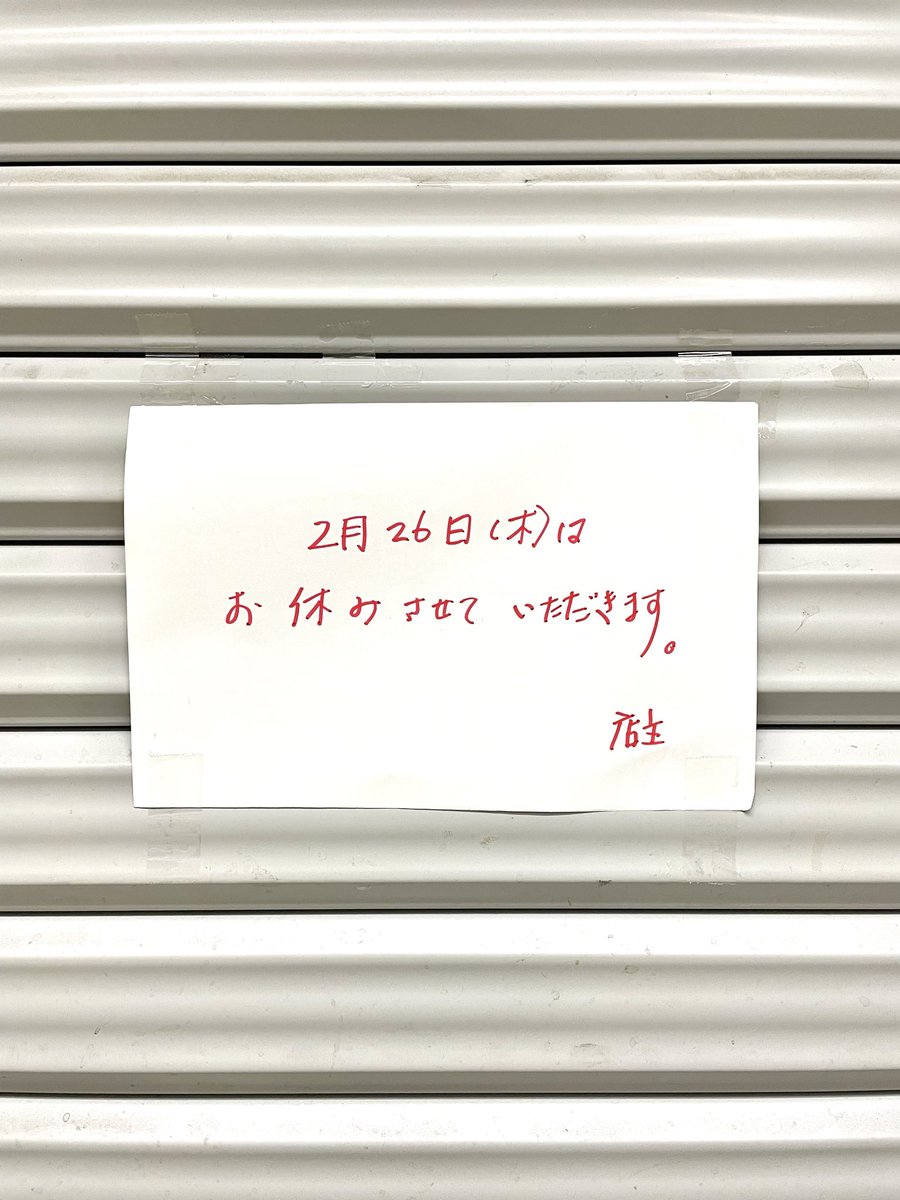 2月26日(木)は
お休みさせていただきます。
店主